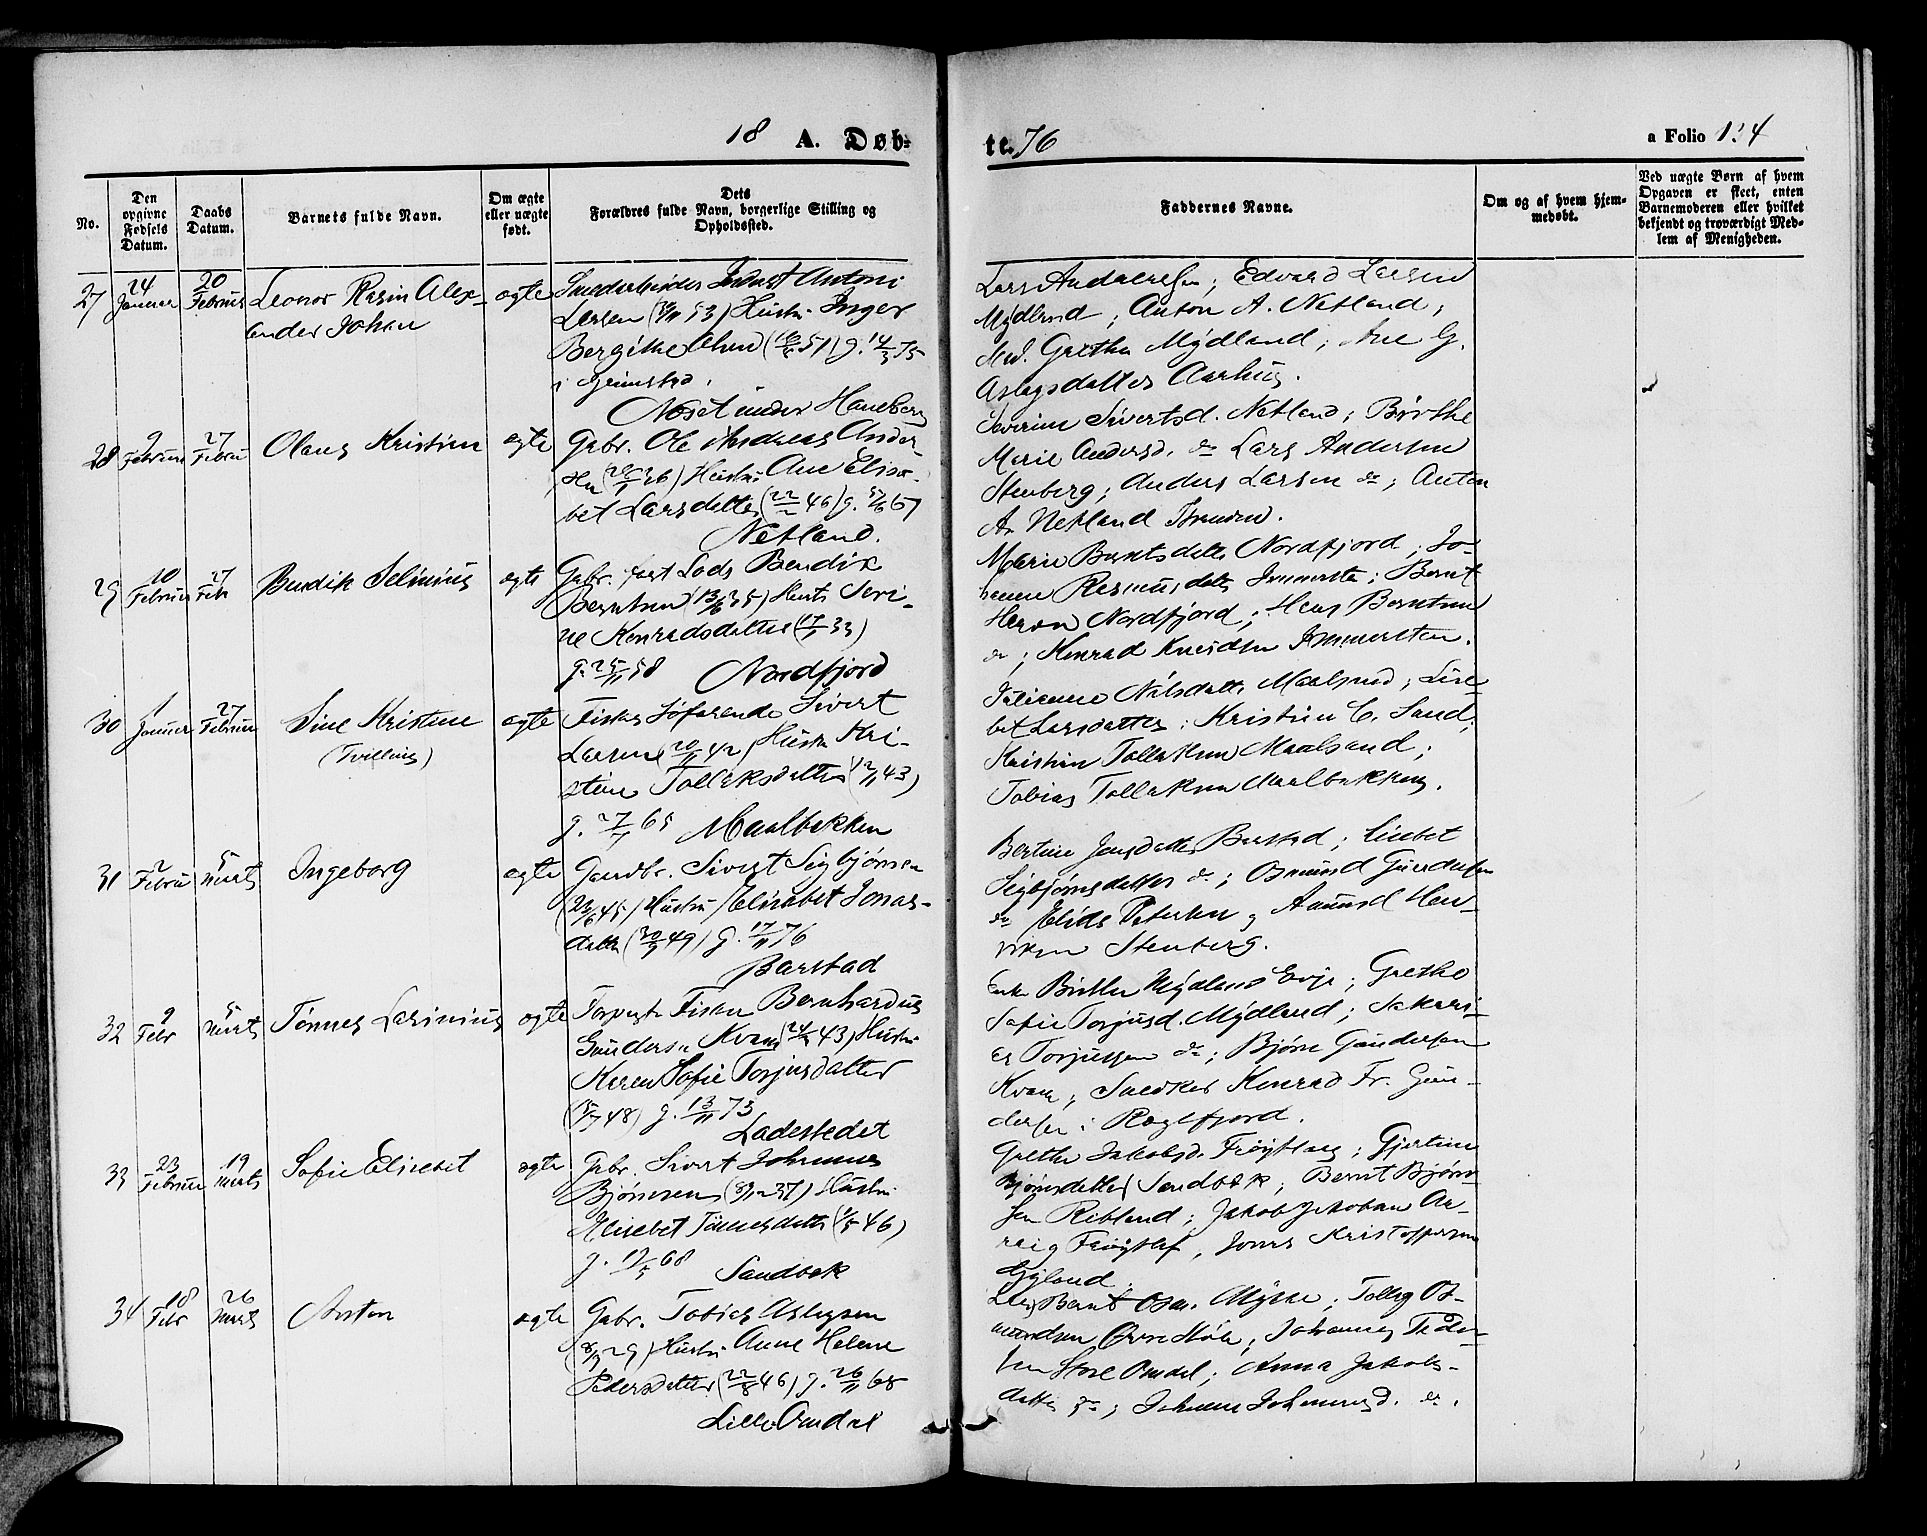 18 A. Døb=
te. 76
a Folio 134
No.
Den opgivne Fødsels Datum.
Daabs Datum.
Barnets fulde Navn.
Om ægte eller uægte født.
Dets Forældres fulde Navn, borgerlige Stilling og Opholdssted.
Faddernes Navne.
Om og af hvem hjemmedøbt.
Ved uægte Børn af hvem Opgaven er skeet, enten Barnemoderen eller hvilket bekjendt og troværdigt Medlem af Menigheden.
27 24 Januar 20 Februar
Leonor Rasin Alex-
ander Johan
ægte
Antoni
Larsen Hustr. Inger
Bergithe Olsen
i Grimstad.
Næset under Haneberg
Lars Andersen; Edvard Larsen
Mydland; Anton A. Netland;
Mad. Grethe Mydland; Ane G.
Aslagsdatter Aarhus.
28 9 Februar 27 Februar
Olaus Kristian
ægte
Gbr. Ole Andreas Ander-
sen Hustr. Ane Elisa-
bet Larsdatter (22/2 46) g. 67
Netland.
Severine Sivertsd. Netland; Birthe
Marie Andersd. do Lars Andersen
Stenberg; Anders Larsen do; Anton
A. Netland
29 10 Februar 27 Feb
Bendik Selinius
ægte
Gbr. fast Lods Bendik
Berntsen (13/6 35) Hustr. Seri-
ne Konradsdatter (17/1 33)
g. 25/11 58 Nordfjord
Marie Berntsdatt. Nordfjord; Jo-
hanne Rasmusdatt. Immersten; Bernt
Nordfjord; Hans Berntsen
do; Konrad Knudsen Immersten.
30 1 Januar 27 Februar
Sine Kristine
(Tvilling)
ægte
Fisker Søfarende Sivert
Larsen (20/11 42) Hustr. Kri-
stine Tollaksdatter (12/11 43)
g. 27/1 65 Maalbakken
Juliane Nilsdatt. Maalsund; Lise-
bet Larsdatter; Kristian C. Sand;
Kristian Tollaksen Maalsund;
Tobias Tollaksen Maalbakken.
31 2 Februar 5 Marts
Ingeborg
ægte
Gaardbr. Sivert Sigbjørnsen
(23/6 45) Hustru Elisabet Jonas-
datter (30/9 49) g. 17/11 76
Barstad
Bertine Jensdatter Barstad; Lisebet
Sigbjørnsdatter do; Osmund Gundersen
do Elias Petersen og Amund Hen-
riksen Stenberg.
32 9 Febr 5 Marts
Tønnes Larinius
ægte
Fisker Bernhardus
Gunders. Kvam (24/ 43) Hustr.
Karen Sofie Torjusdatter
(15/7 48) g. 13/11 73
Ladestedet
Enke Birthe Mydland Evje; Grethe
Sofie Torjusd. Mydland; Sakari-
as Torjussen do; Bjørn Gundersen
Kvam; Snedker Konrad Fr. Gun-
dersen i Ragefjord.
33 23 Februar 19 Marts
Sofie Elisabet
ægte
Gbr. Sivert Johannes
Bjørnsen Hustr.
Elisabet Tønnesdatter (1/5 46)
g. 68 Sandbæk
Grethe Jakobsd. Frøytlog; Gjertine
Bjørnsdatter Sandbæk; Bernt Bjørn-
sen Ribland; Jakob Jakobsen
Jonas Kristoffersen
Egeland.
34 18 Febr 26 Marts
Anton
ægte
Gbr. Tobias Aslagsen
(8/9 29) Hustr. Anne Helene
Pedersdatter (22/8 46) g. 26/11 68
Lille Omdal
Bernt Osm. Mysse; Tollag Os-
mundsen Johannes Peder-
sen Store Omdal; Anna Jakobs-
datter do; Johanne Johannesd. do.